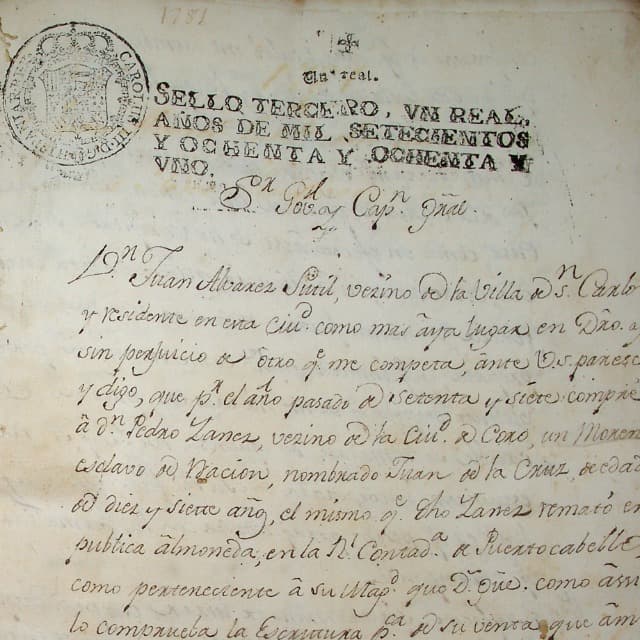 1781
CAROLUS III D G HISPANIAR
Un real.
SELLO TERCERO, VN REAL,
AÑOS DE MIL SETECIENTOS
Y OCHENTA Y OCHENTA Y
VNO.
Sor Govr y Capn Gral.
Dn Juan Alvarez Sutil, vezino de la Villa de Sn Carlo
y residente en esta Ciud. como mas aya lugar en Dro. y
sin perjuicio de otro qe. me competa, ante V.S. paresc
y digo, que pr. el año pasado de setenta y siete compre
â dn. Pedro Zanez, vezino de la Ciud. de Coro, un Moren
esclavo de Nacion, nombrado Juan de la Cruz, de edad
de diez y siete años, el mismo qe. dho Zanez remató en
publica âlmoneda, en la Rl. Contada. de Puertocabelle
como perteneciente â su Magd. que Ds. gue. como âssi
lo comprueba la Escritura pca. de su venta que âm